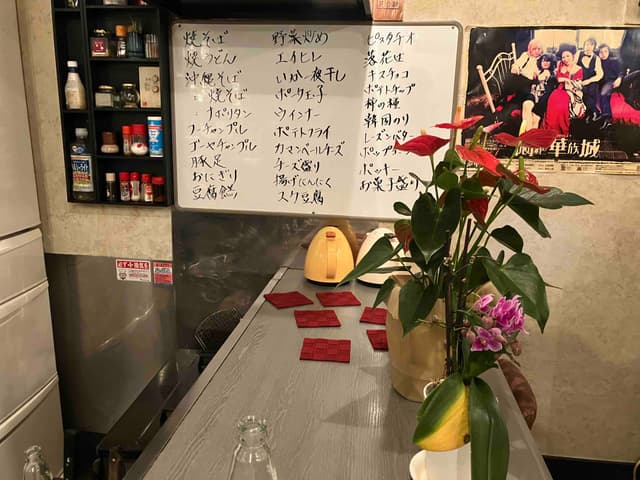 焼そば
焼うどん
沖縄そば
〃焼そば
〃ナポリタン
フーチャンプレー
ゴーヤチャンプレー
豚足
おにぎり
野菜炒め
エイヒレ
いか一夜干し
ポーク玉子
ウインナー
ポテトフライ
カマンベールチーズ
チーズ盛り
揚げにんにく
スク豆腐
ピスタチオ
落花生
キスチョコ
ポテトチップ
柿の種
韓国のり
レーズンバター
ポップ
ポッキー
お菓子盛り
華族城